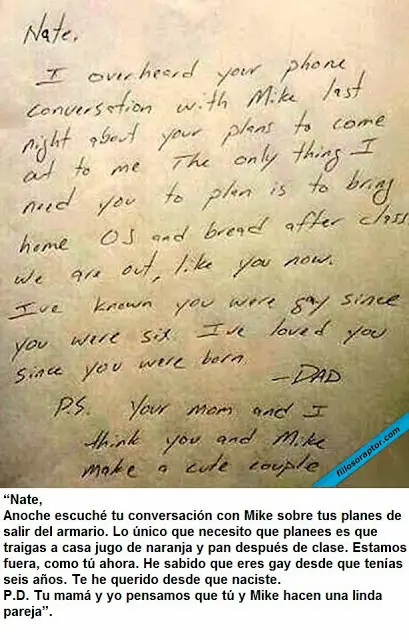 Nate,
I overheard your phone
conversation with Mike last
night about your plans to come
out to me The only thing I
need you to plan is to bring
home OJ and bread after class.
We are out, like you now.
I've known you were gay since
you were six. I've loved you
since you were born.
- DAD
P.S. Your mom and I
think you and Mike
make a cute couple
fiilosoraptor.com
“Nate,
Anoche escuché tu conversación con Mike sobre tus planes de
salir del armario. Lo único que necesito que planees es que
traigas a casa jugo de naranja y pan después de clase. Estamos
fuera, como tú ahora. He sabido que eres gay desde que tenías
seis años. Te he querido desde que naciste.
P.D. Tu mamá y yo pensamos que tú y Mike hacen una linda
pareja”.